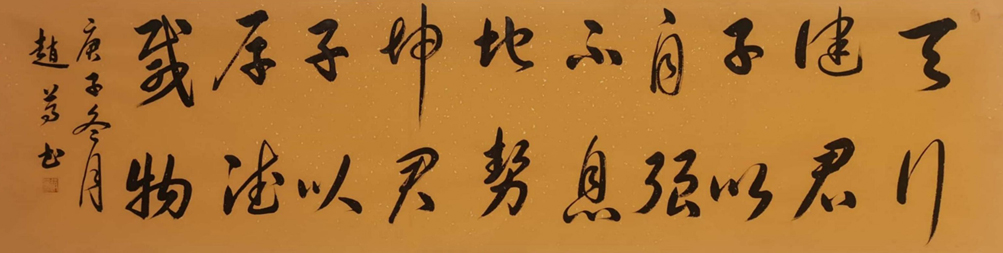 天行
健君
子以
自强
不息
地勢
坤君
子以
厚德
載物
庚子冬月
趙书